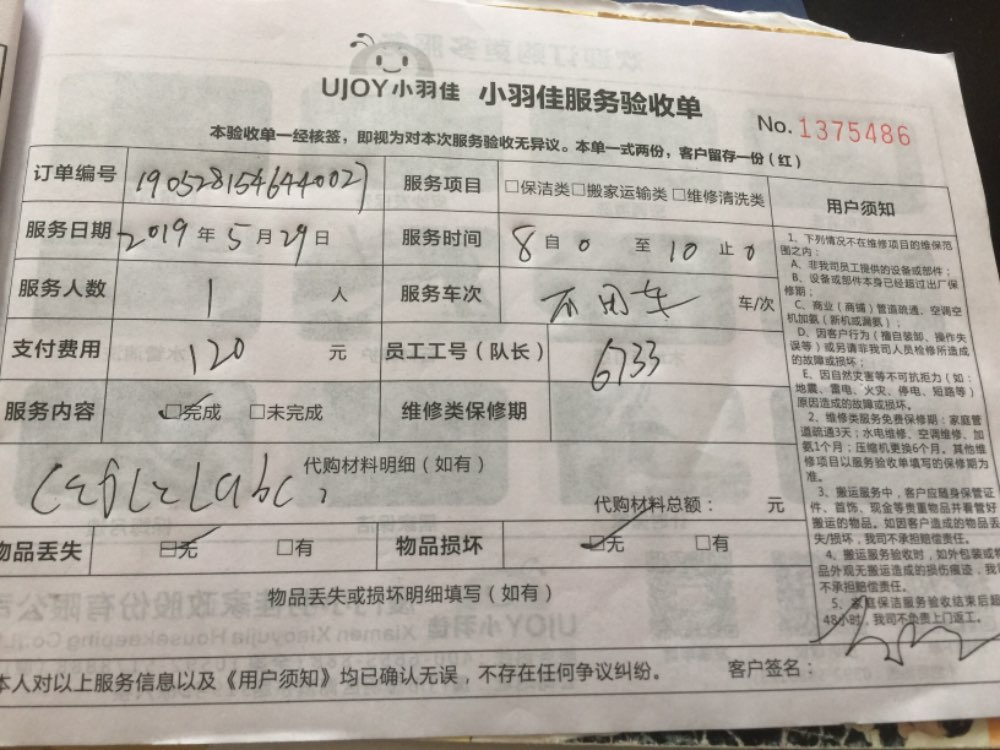 UJOY小羽佳 小羽佳服务验收单
No. 1375486
本验收单一经核签，即视为对本次服务验收无异议。本单一式两份，客户留存一份（红）
订单编号 190528154644002] 服务项目 □保洁类□搬家运输类□维修清洗类
服务日期 2019 年 5 月 29 日 服务时间 8 自 0 至 10 止 0
服务人数 1 人 服务车次 不用车 车/次
支付费用 120 元 员工工号（队长） 6733
服务内容 □完成 □未完成 维修类保修期
代购材料明细（如有）
代购材料总额： 元
物品丢失 □无 □有 物品损坏 □无 □有
物品丢失或损坏明细填写（如有）
本人对以上服务信息以及《用户须知》均已确认无误，不存在任何争议纠纷。 客户签名：
用户须知
1、下列情况不在维修项目的维保范
围之内：
A、非我司员工提供的设备或部件；
B、设备或部件本身已经超过出厂保
修期；
C、商业（商铺）管道疏通、空调空
机加氨（新机或漏氨）；
D、因客户行为（擅自装卸、操作失
误等）或另请非我司人员检修所造成
的故障或损坏；
E、因自然灾害等不可抗拒力（如：
地震、雷电、火灾、停电、短路等）
原因造成的故障或损坏。
2、维修类服务免费保修期：家庭管
道疏通3天；水电维修、空调维修、加
氨1个月；压缩机更换6个月。其他维
修项目以服务验收单填写的保修期为
准。
3、搬运服务中，客户应随身保管证
件、首饰、现金等贵重物品并看管好
搬运的物品。如因客户造成的物品丢
失/损坏，我司不承担赔偿责任。
4、搬运服务验收时，如外包装或物
品外观无搬运造成的损伤痕迹，我司
不承担赔偿责任。
5、家庭保洁服务验收结束后超
48小时，我司不负责上门返工。